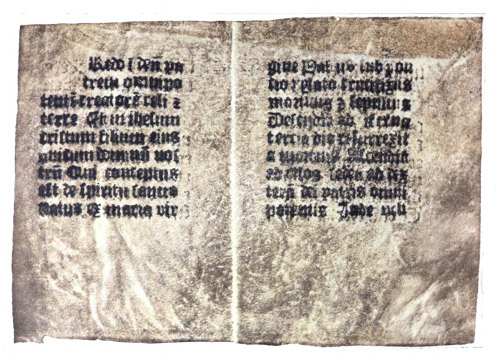 Redo ĩ deũ pa
trem omnipo
tentẽ creatorẽ celi ⁊
terre Et in ihesum
cristum filium eius
unicum dominũ nos
trũ Qui conceptus
est de spiritu sancto
Natus ex maria vir
gine Passus sub pon
tio pilato crucifixus
mortuus ⁊ sepultus
Descendit ad iferna
tercia die resurrexit
a mortuis Ascendit
ad celos sedet ad dex
terã dei patris omni
potentis Inde